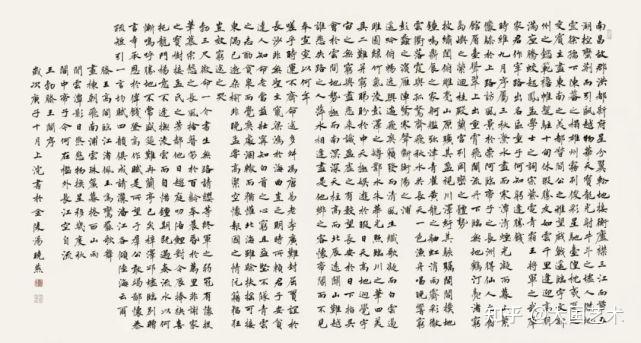 南昌故郡洪都新府星分翼軫地接衡廬襟三江而帶五
湖控蠻荊而引甌越物華天寶龍光射牛斗之墟人傑地
靈徐孺下陳蕃之榻雄州霧列俊彩星馳臺隍枕夷夏之交
賓主盡東南之美都督閻公之雅望棨戟遙臨宇文新
州之懿範襜帷暫駐十旬休暇勝友如雲千里逢迎高朋
滿座騰蛟起鳳孟學士之詞宗紫電青霜王將軍之武庫
家君作宰路出名區童子何知躬逢勝餞
時維九月序屬三秋潦水盡而寒潭清煙光凝而暮山紫
儼驂騑於上路訪風景於崇阿臨帝子之長洲得仙人之舊
館層巒聳翠上出重霄飛閣流丹下臨無地鶴汀鳧渚窮
島嶼之縈迴桂殿蘭宮列岡巒之體勢
披繡闥俯雕甍山原曠其盈視川澤紆其駭矚閭閻撲地
鍾鳴鼎食之家舸艦迷津青雀黃龍之舳虹銷雨霽彩徹
雲衢落霞與孤鶩齊飛秋水共長天一色漁舟唱晚響窮
彭蠡之濱雁陣驚寒聲斷衡陽之浦
遙吟俯暢逸興遄飛爽籟發而清風生纖歌凝而白雲遏
睢園綠竹氣凌彭澤之樽鄴水朱華光照臨川之筆四美
具二難并窮睇眄於中天極娛遊於暇日天高地迥覺宇
宙之無窮興盡悲來識盈虛之有數望長安於日下指吳
會於雲間地勢極而南溟深天柱高而北辰遠關山難越
誰悲失路之人萍水相逢盡是他鄉之客懷帝閽而不見
奉宣室以何年
嗟乎時運不齊命途多舛馮唐易老李廣難封屈賈誼於
長沙非無聖主竄梁鴻於海曲豈乏明時所賴君子安貧
達人知命老當益壯寧知白首之心窮且益堅不墜青雲
之志酌貪泉而覺爽處涸轍而猶懽北海雖賒扶搖可接
東隅已逝桑榆非晚孟嘗高潔空懷報國之情阮籍猖狂
豈效窮途之哭
勃三尺微命一介書生無路請纓等終軍之弱冠有懷投
筆慕宗愨之長風捨簪笏於百齡奉晨昏於萬里非謝家
之寶樹接孟氏之芳鄰他日趨庭叨陪鯉對今晨捧袂喜
托龍門楊意不逢撫凌雲而自惜鍾期既遇奏流水以何
慚嗚呼勝地不常盛筵難再蘭亭已矣梓澤邱墟臨別贈
言幸承恩於偉餞登高作賦是所望於群公敢竭鄙懷恭
疏短引一言均賦四韻俱成請灑潘江各傾陸海云爾
滕王高閣臨江渚佩玉鳴鸞罷歌舞
畫棟朝飛南浦雲珠簾暮捲西山雨
閒雲潭影日悠悠物換星移幾度秋
閣中帝子今何在檻外長江空自流
王勃滕王閣序
歲次庚子十月上浣書於金陵湯曉燕
知乎 @六国艺术